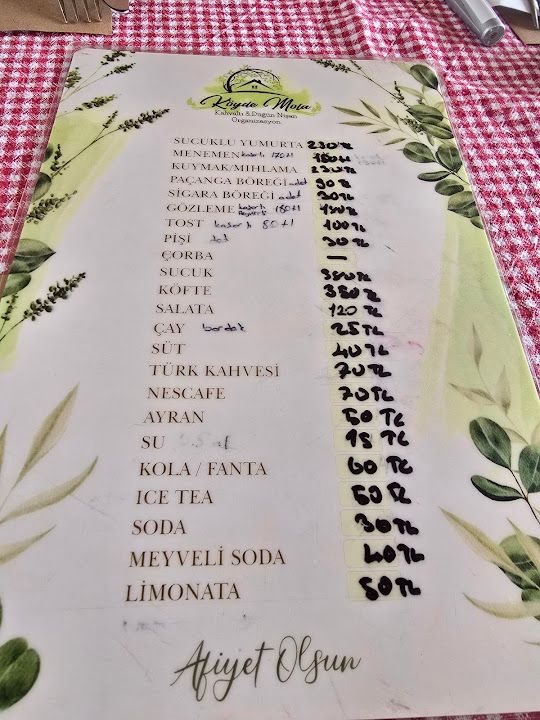 Köyde Mola
Kahvaltı & Düğün Nişan
Organizasyon
SUCUKLU YUMURTA 230 TL
MENEMEN kaşarlı 170 tl 160 tl
KUYMAK/MIHLAMA 230 TL
PAÇANGA BÖREĞİ adet 90 TL
SİGARA BÖREĞİ adet 30 TL
GÖZLEME kaşarlı 180 tl 150 TL
TOST kaşarlı 80 tl 100 TL
PİŞİ 30 TL
ÇORBA —
SUCUK 350 TL
KÖFTE 350 TL
SALATA 120 TL
ÇAY bardak 25 TL
SÜT 40 TL
TÜRK KAHVESİ 70 TL
NESCAFE 70 TL
AYRAN 50 TL
SU 15 TL
KOLA / FANTA 60 TL
ICE TEA 60 TL
SODA 30 TL
MEYVELİ SODA 40 TL
LİMONATA 50 TL
Afiyet Olsun